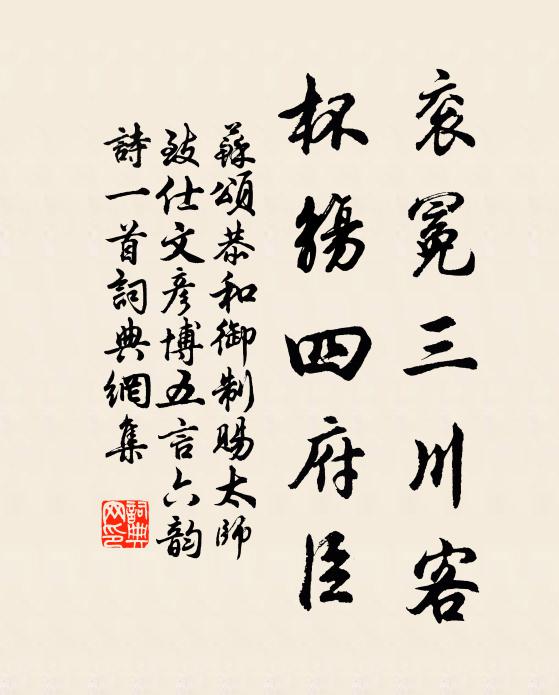 衮冕三川客
杯觴四府臣
蘇頌恭和御制賜太師
致仕文彥博五言六韵
詩一首詞典網集
詞典
网印